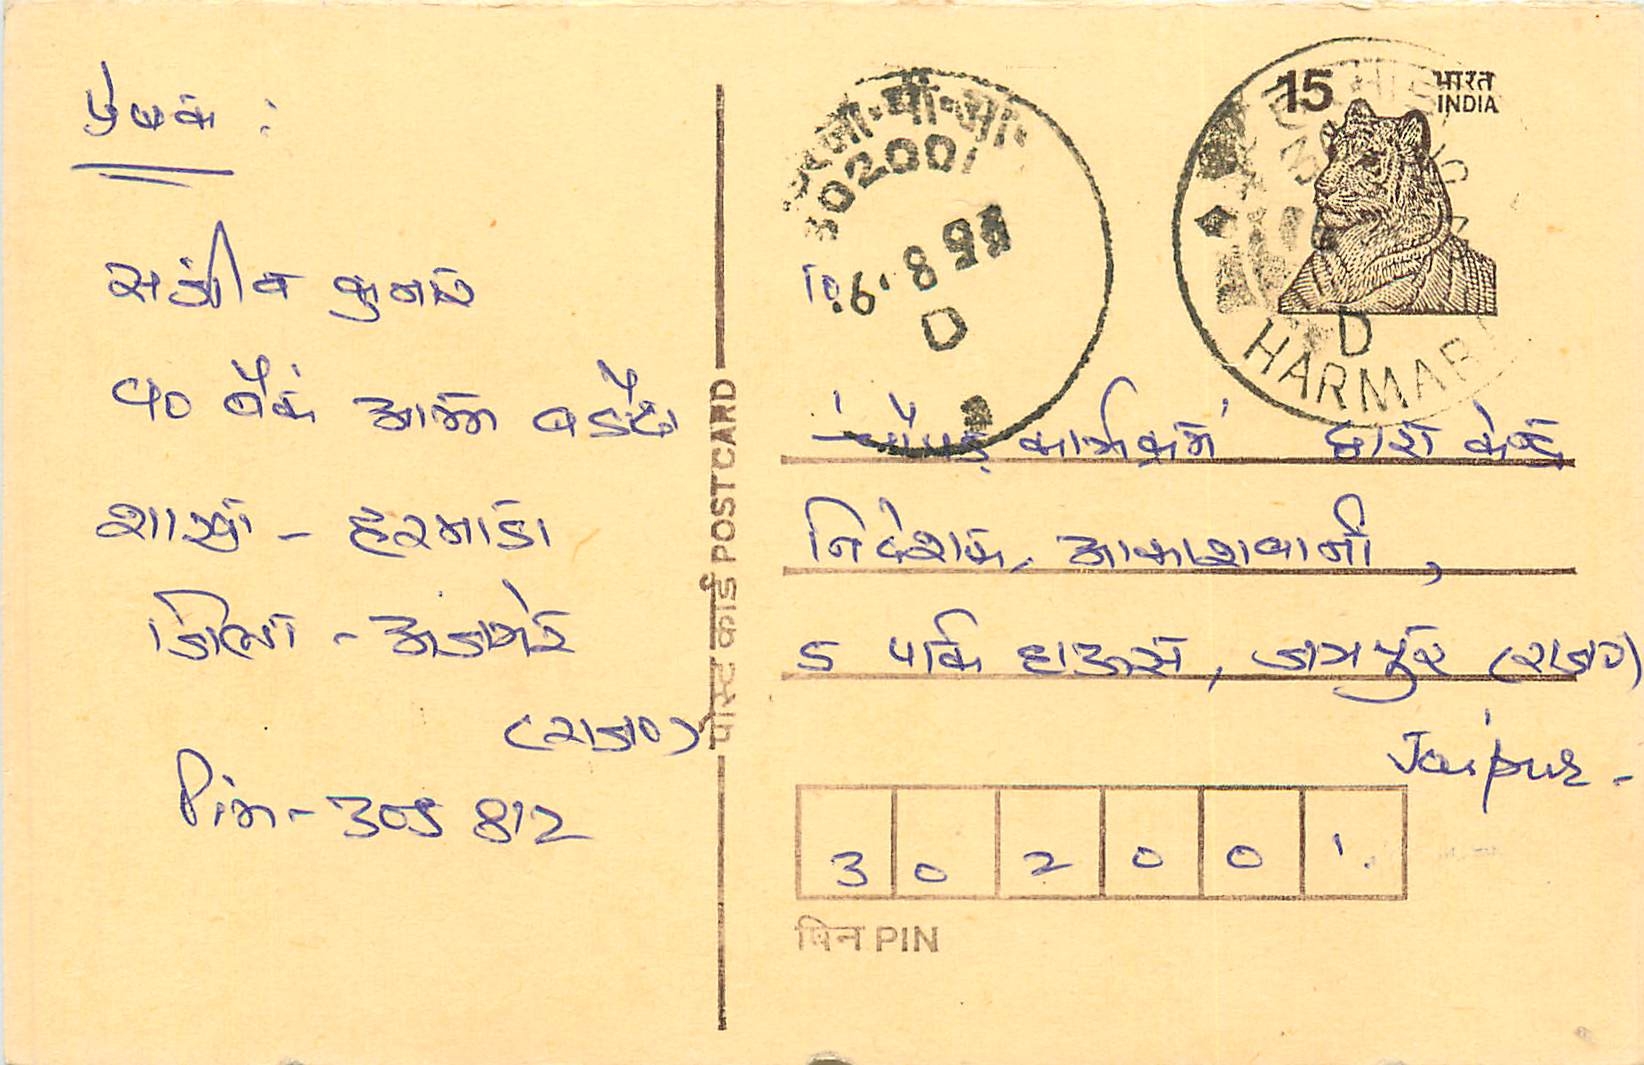 प्रेषक :
संजीव कुमार
C/O बैंक ऑफ बड़ौदा
शाखा - हरमाडा
जिला - अजमेर
(राज०)
Pin - 305 812
पोस्ट कार्ड POSTCARD
जी.पी.ओ.
302001
6.8.95
D
To,
15
भारत
INDIA
D
HARMARA
कार्यक्रम द्वारा केन्द्र
निदेशक, आकाशवाणी,
5 पार्क हाऊस, जयपुर (राज०)
Jaipur -
302001
पिन PIN